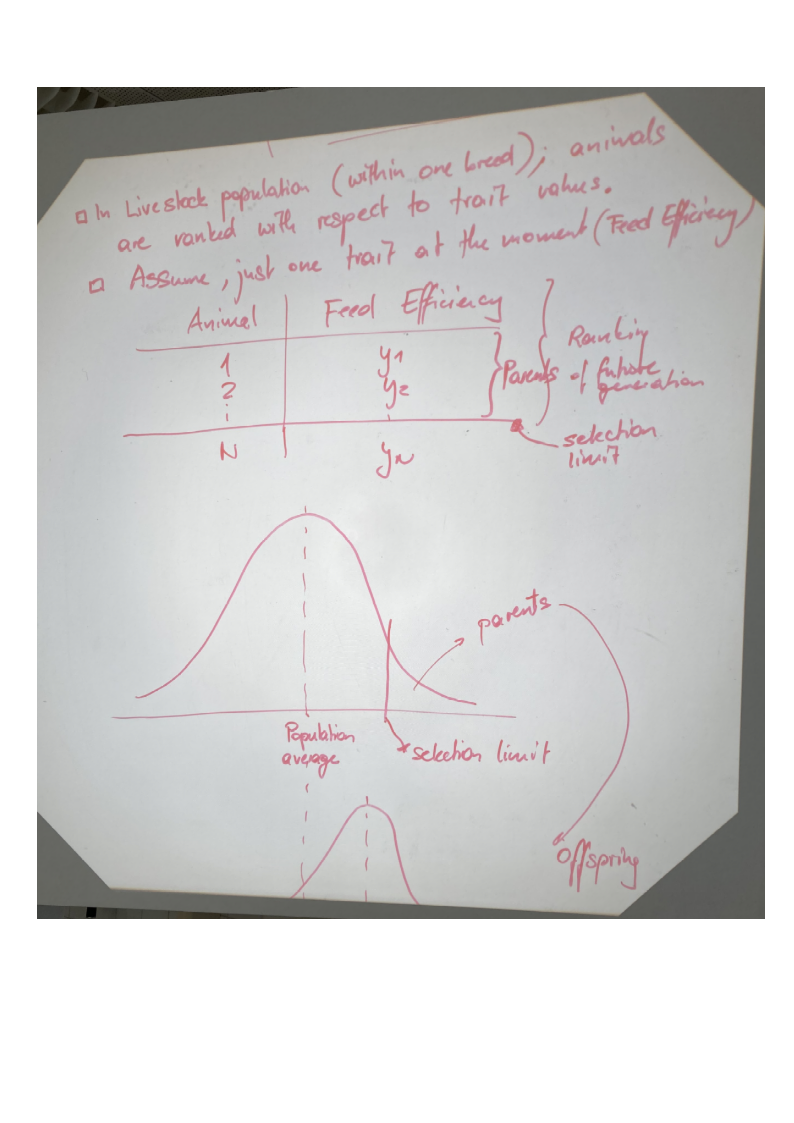 □ In Livestock population (within one breed); animals
are ranked with respect to trait values.
□ Assume, just one trait at the moment (Feed Efficiency)
Animal Feed Efficiency
1 y1
2 y2
⋮ ⋮
N yN
Parents
Ranking
of future
generation
selection
limit
parents
Population
average
selection limit
Offspring